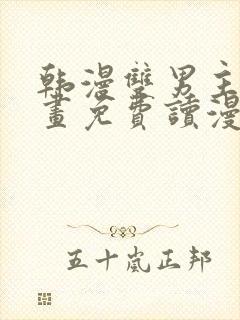 韩漫雙男主
畫免費讀漫
五十嵐正邦